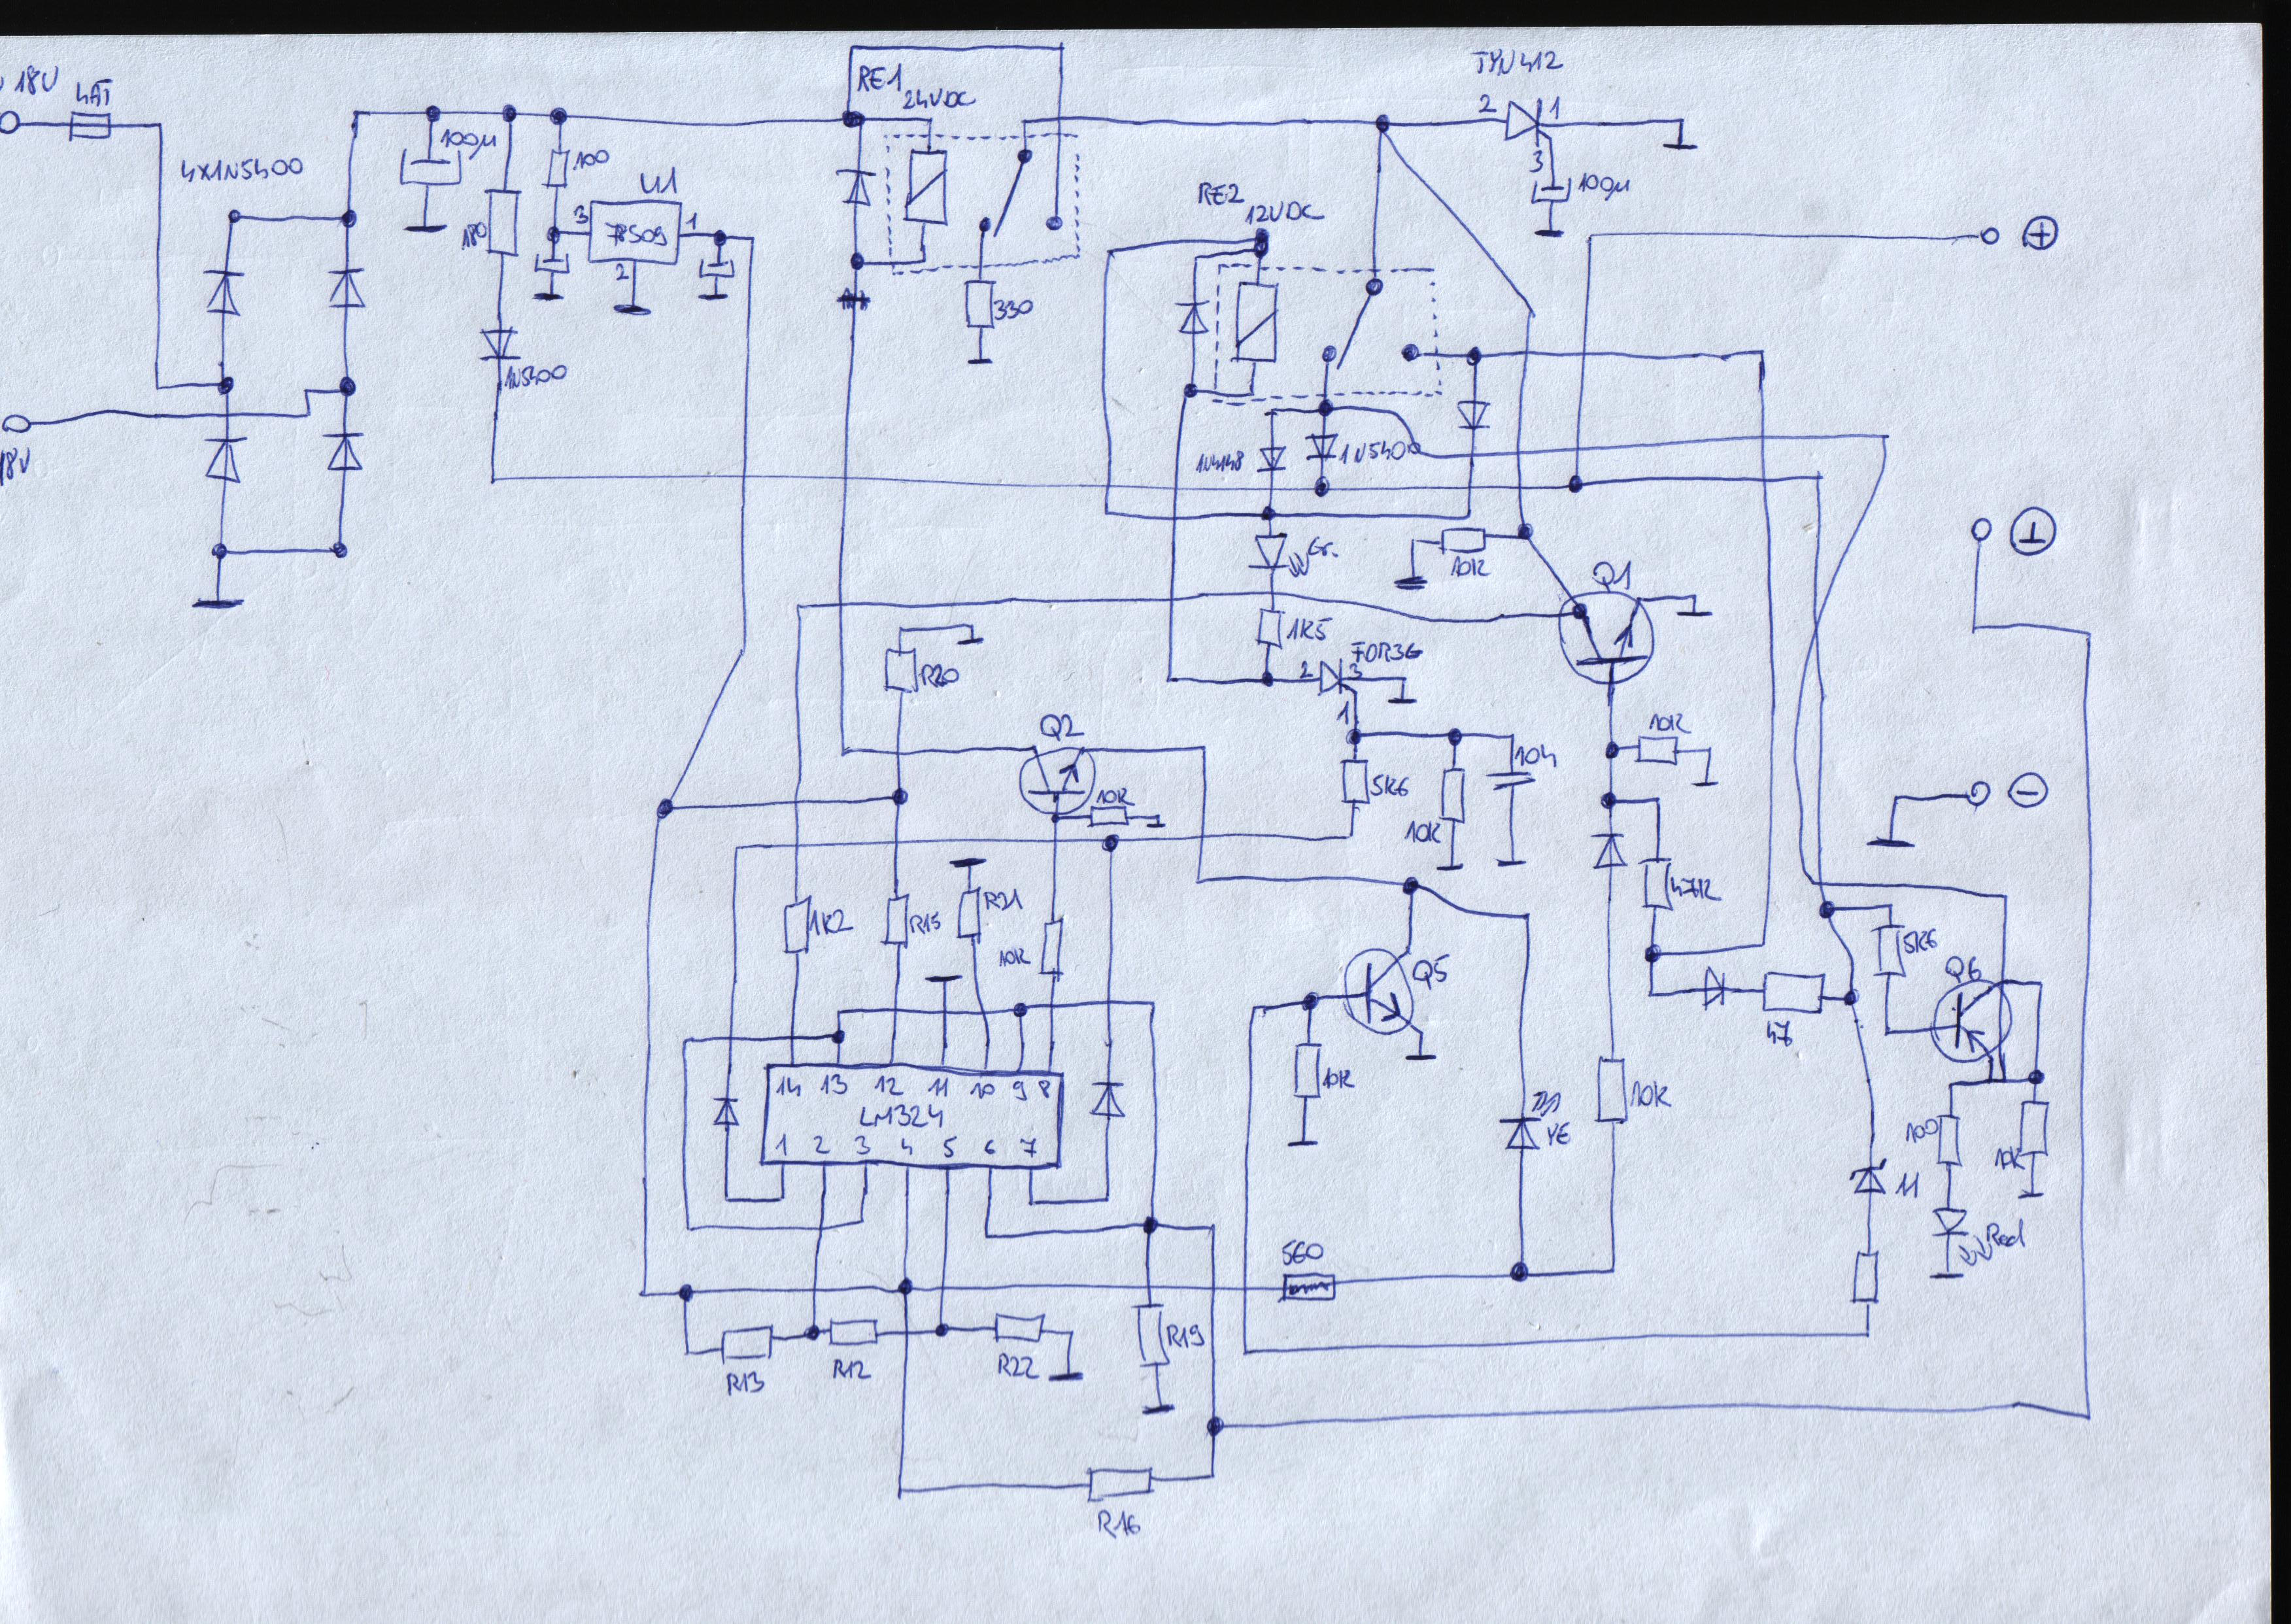 18V
4AT
4x1N5400
100µ
180
100
U1
3
78S09
1
2
1N5400
RE1
24VDC
330
TYN412
2
1
3
100µ
RE2
12VDC
+
18V
1N4148
1N5400
Gr.
10K
Q1
1K5
2
3
FOR3G
1
R20
Q2
10K
10K
5K6
10K
10n
47K
−
1K2
R15
R21
10K
Q5
5K6
Q6
47
14 13 12 11 10 9 8
LM324
1 2 3 4 5 6 7
10K
YE
10K
100
10K
11
Red
560
R13
R12
R22
R19
R16